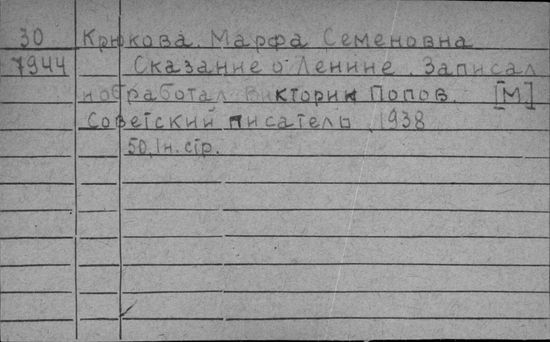 30 Крюкова, Марфа Семеновна
7944 Сказание о Ленине. Записал
и обработал Викторин Попов. [М]
Советский писатель, 1938
50, 1н. стр.